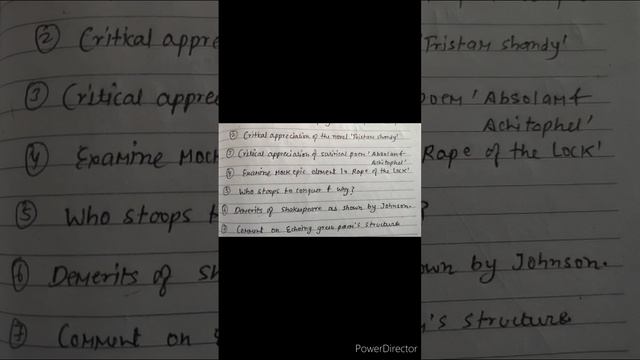 ② Critical appreciation of the novel 'Tristam shandy'
③ Critical appreciation of satirical poem 'Absolam &
Achitophel'
④ Examine Mock epic element in Rape of the Lock'
⑤ Who stoops to conquer & why?
⑥ Demerits of Shakespeare as shown by Johnson.
⑦ Comment on Echoing green poem's structure
PowerDirector